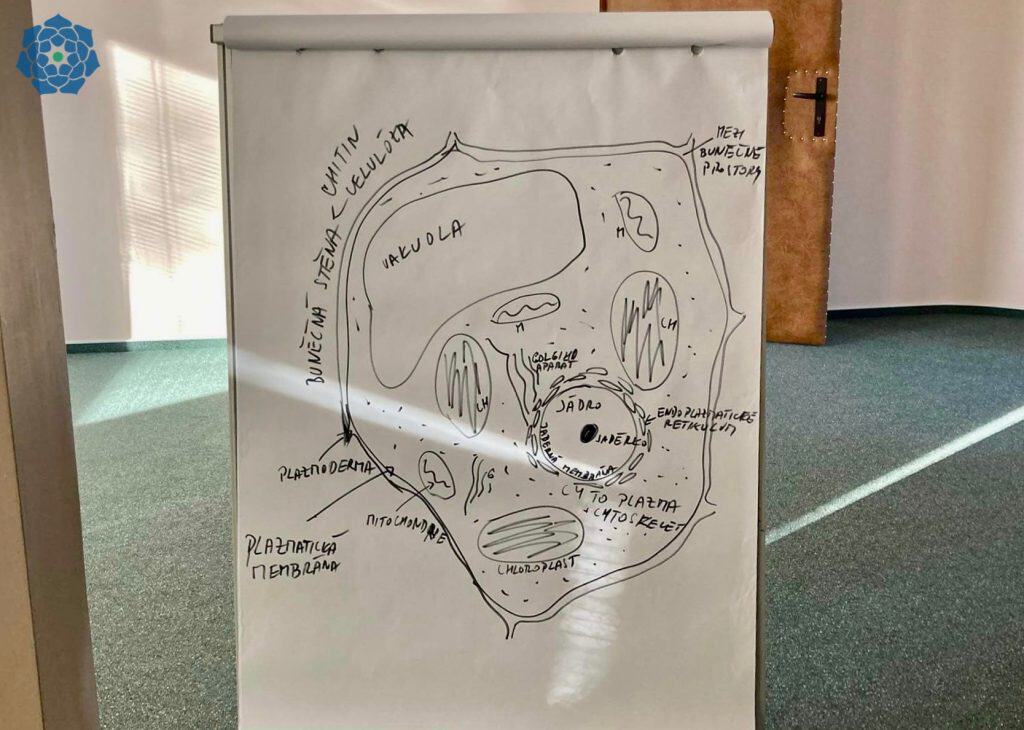 BUNĚČNÁ STĚNA < CHITIN
CELULÓZA
MEZI
BUNĚČNÉ
PROSTORY
VAKUOLA
M
M
CH
GOLGIHO
APARÁT
CH
JÁDRO
JADÉRKO
JADERNÁ MEMBRÁNA
ENDOPLAZMATICKÉ
RETIKULUM
PLAZMODERMA
G
CYTOPLAZMA
+ CYTOSKELET
MITOCHONDRIE
PLAZMATICKÁ
MEMBRÁNA
CHLOROPLAST